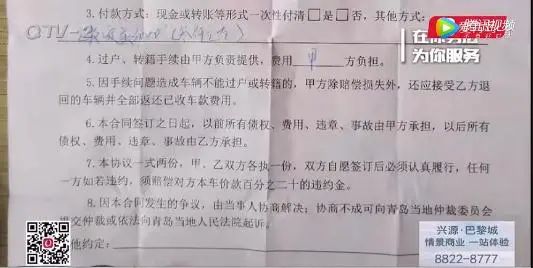 3.付款方式：现金或转账等形式一次性付清□是□否，其他方式：
QTV-2
腾讯视频
在你身边
为你服务
4.过户、转籍手续由甲方负责提供，费用 甲 方负担。
5.因手续问题造成车辆不能过户或转籍的，甲方除赔偿损失外，还应接受乙方退
回的车辆并全部返还已收车款费用。
6.本合同签订之日起，以前所有债权、费用、违章、事故由甲方承担，以后所有
债权、费用、违章、事故由乙方承担。
7.本协议一式两份，甲、乙双方各执一份，双方自愿签订后必须认真履行，任何
一方如若违约，须赔偿对方本车价款百分之二十的违约金。
8.因本合同发生的争议，由当事人协商解决；协商不成可向青岛当地仲裁委员会
提交仲裁或依法向青岛当地人民法院起诉。
他约定：
兴源·巴黎城
情景商业 一站体验
8822-8777